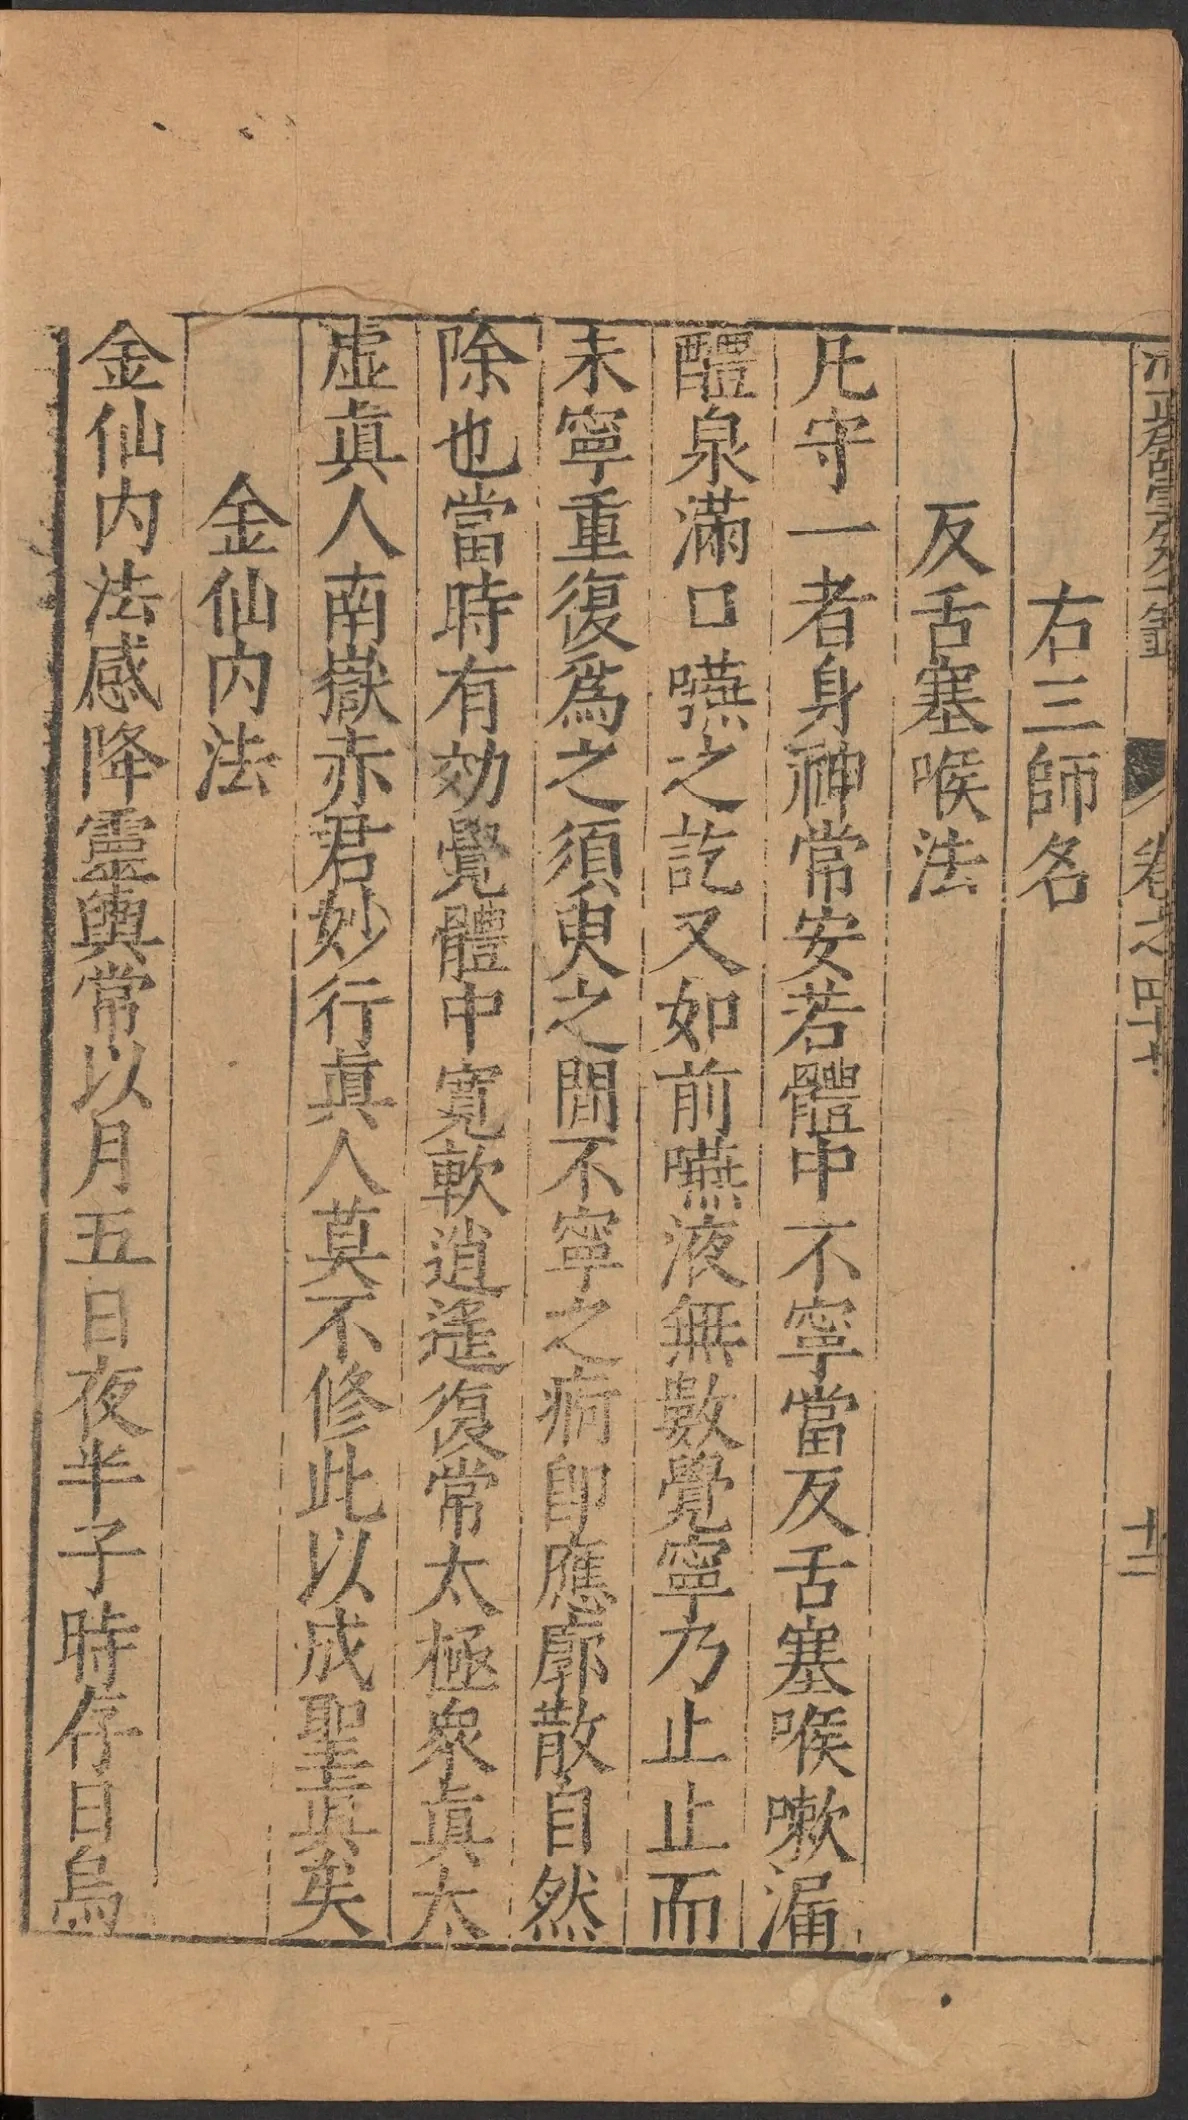 卷之四十
十二
右三師名
反舌塞喉法
凡守一者身神常安若體中不寧當反舌塞喉嗽漏
醴泉滿口嚥之訖又如前嚥液無數覺寧乃止止而
未寧重復爲之須臾之間不寧之病即應廓散自然
除也當時有効覺體中寬軟逍遙復常太極衆眞太
虛眞人南嶽赤君妙行眞人莫不修此以成聖眞矣
金仙内法
金仙内法感降靈輿常以月五日夜半子時存日烏